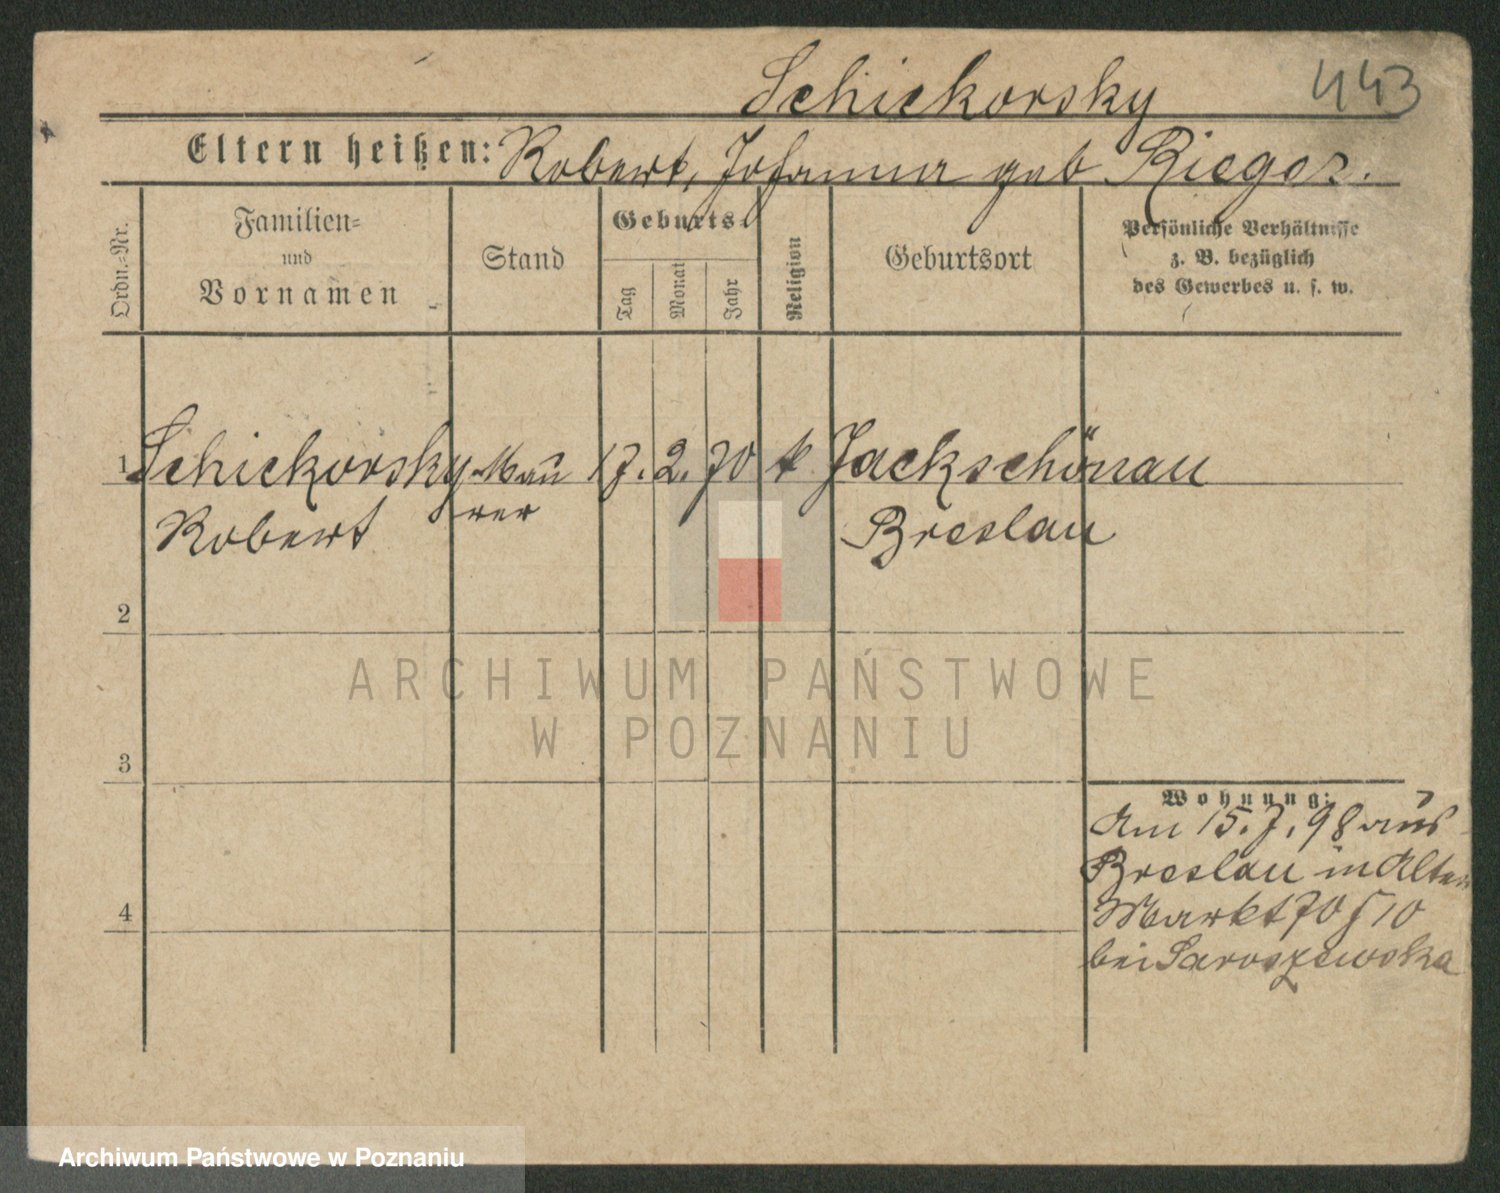 Schickorsky 443
Eltern heißen: Robert, Johanna geb Rieger.
Ordn.-Nr.
Familien-
und
Vornamen
Stand
Geburts-
Tag
Monat
Jahr
Religion
Geburtsort
Persönliche Verhältnisse
z. B. bezüglich
des Gewerbes u. s. w.
1 Schickorsky Mau 17. 2. 70 k Jackschönau
Robert rer Breslau
2
ARCHIWUM PAŃSTWOWE
W POZNANIU
3
Wohnung:
Am 15. 7. 98 aus
Breslau in Alten
Markt 70 S 10
bei Saroszewska
4
Archiwum Państwowe w Poznaniu